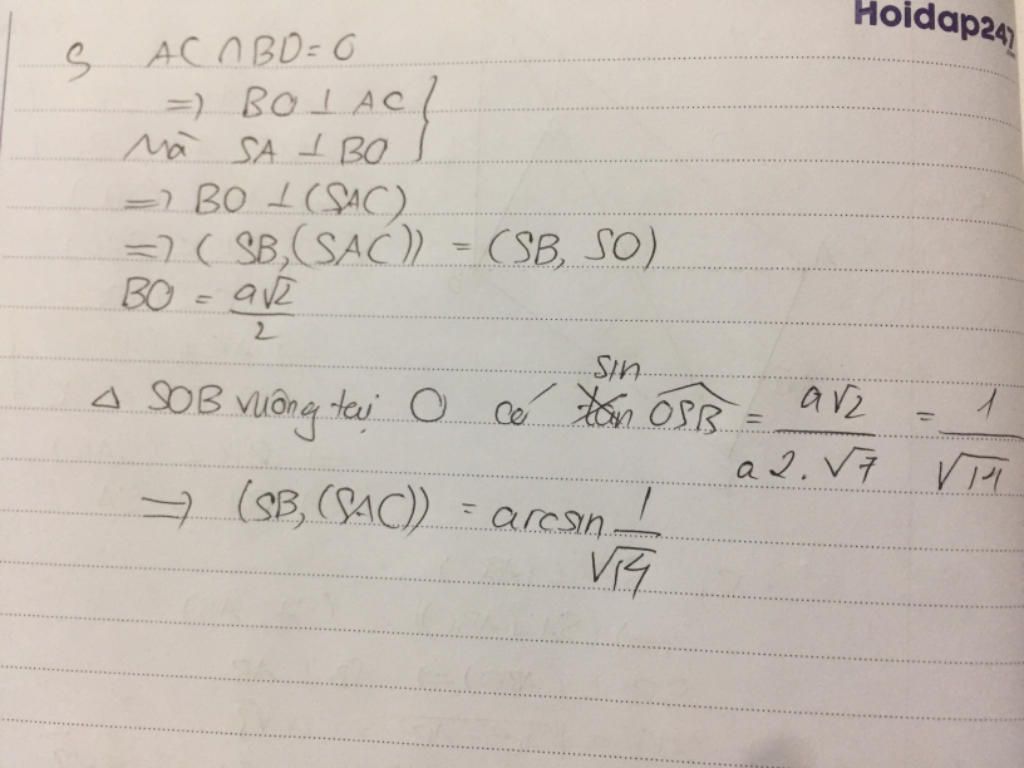 Hoidap247
S AC ∩ BD = O
=> BO ⊥ AC }
Mà SA ⊥ BO
=> BO ⊥ (SAC)
=> (SB, (SAC)) = (SB, SO)
BO = a√2/2
Δ SOB vuông tại O có sin OSB = a√2 / a2.√7 = 1/√14
=> (SB, (SAC)) = arcsin 1/√14